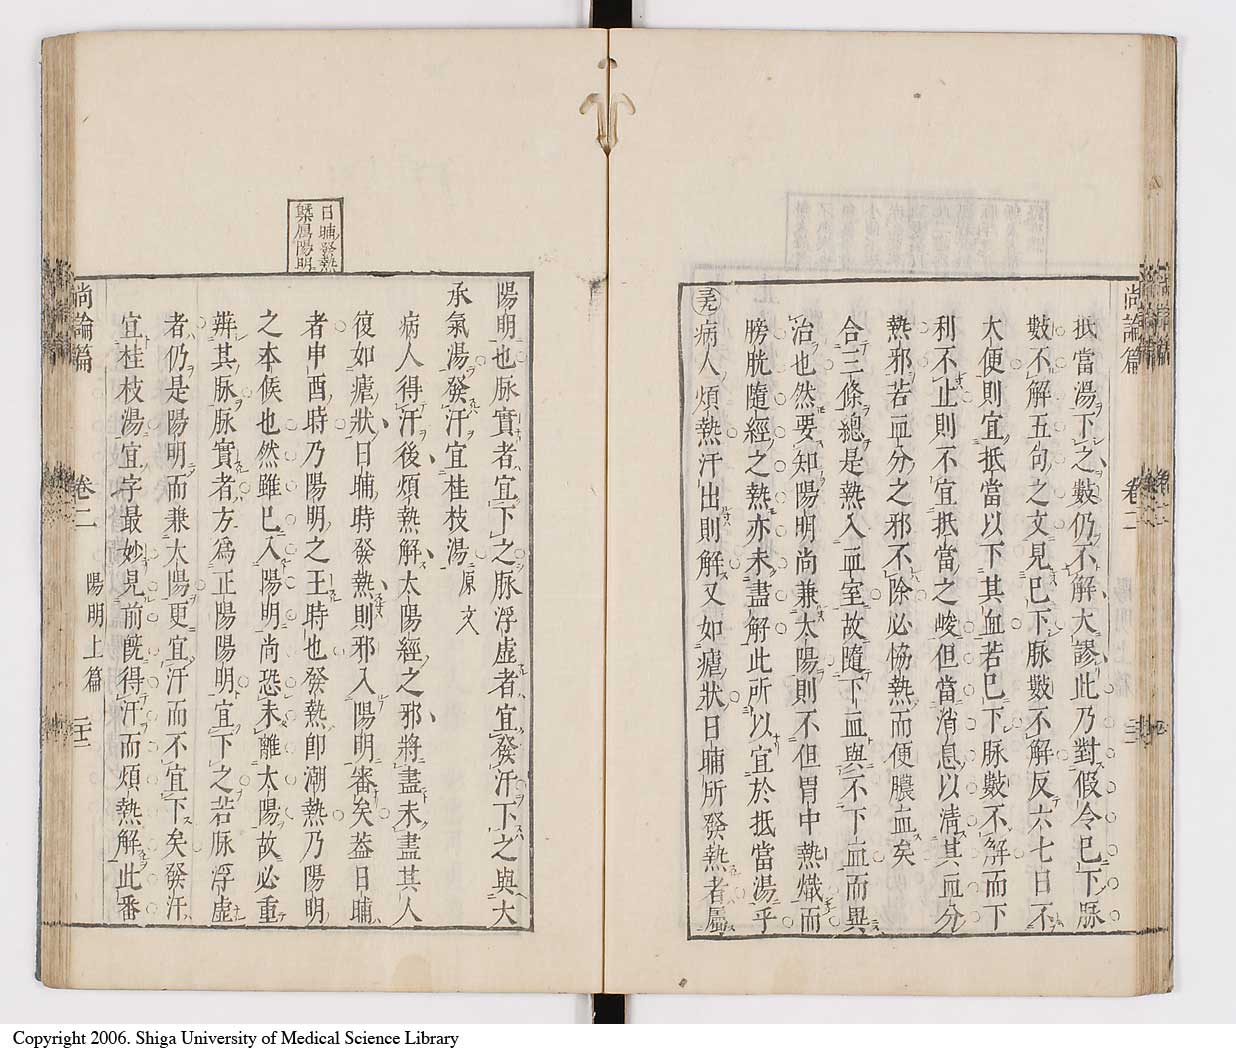 尚論篇 卷二
抵當湯下之數仍不解大謬此乃對假令已下脉
數不解五句之文見已下脉數不解反六七日不
大便則宜抵當以下其血若已下脉數不解而下
利不止則不宜抵當之峻但當消息以清其血分
熱邪若血分之邪不除必恊熱而便膿血矣
合三條總是熱入血室故隨下血與不下血而異
治也然要知陽明尚兼太陽則不但胃中熱熾而
膀胱隨經之熱亦未盡解此所以宜於抵當湯乎
病人煩熱汗出則解又如瘧狀日晡所發熱者屬
陽明也脉實者宜下之脉浮虛者宜發汗下之與大
承氣湯發汗宜桂枝湯 原文
病人得汗後煩熱解太陽經之邪將盡未盡其人
復如瘧狀日晡時發熱則邪入陽明審矣葢日晡
者申酉時乃陽明之王時也發熱卽潮熱乃陽明
之本候也然雖已入陽明尚恐未離太陽故必重
辨其脉脉實者方爲正陽陽明宜下之若脉浮虛
者仍是陽明而兼太陽更宜汗而不宜下矣發汗
宜桂枝湯宜字最妙見前旣得汗而煩熱解此番
日晡發熱
槩屬陽明
尚論篇 卷二 陽明上篇
Copyright 2006. Shiga University of Medical Science Library